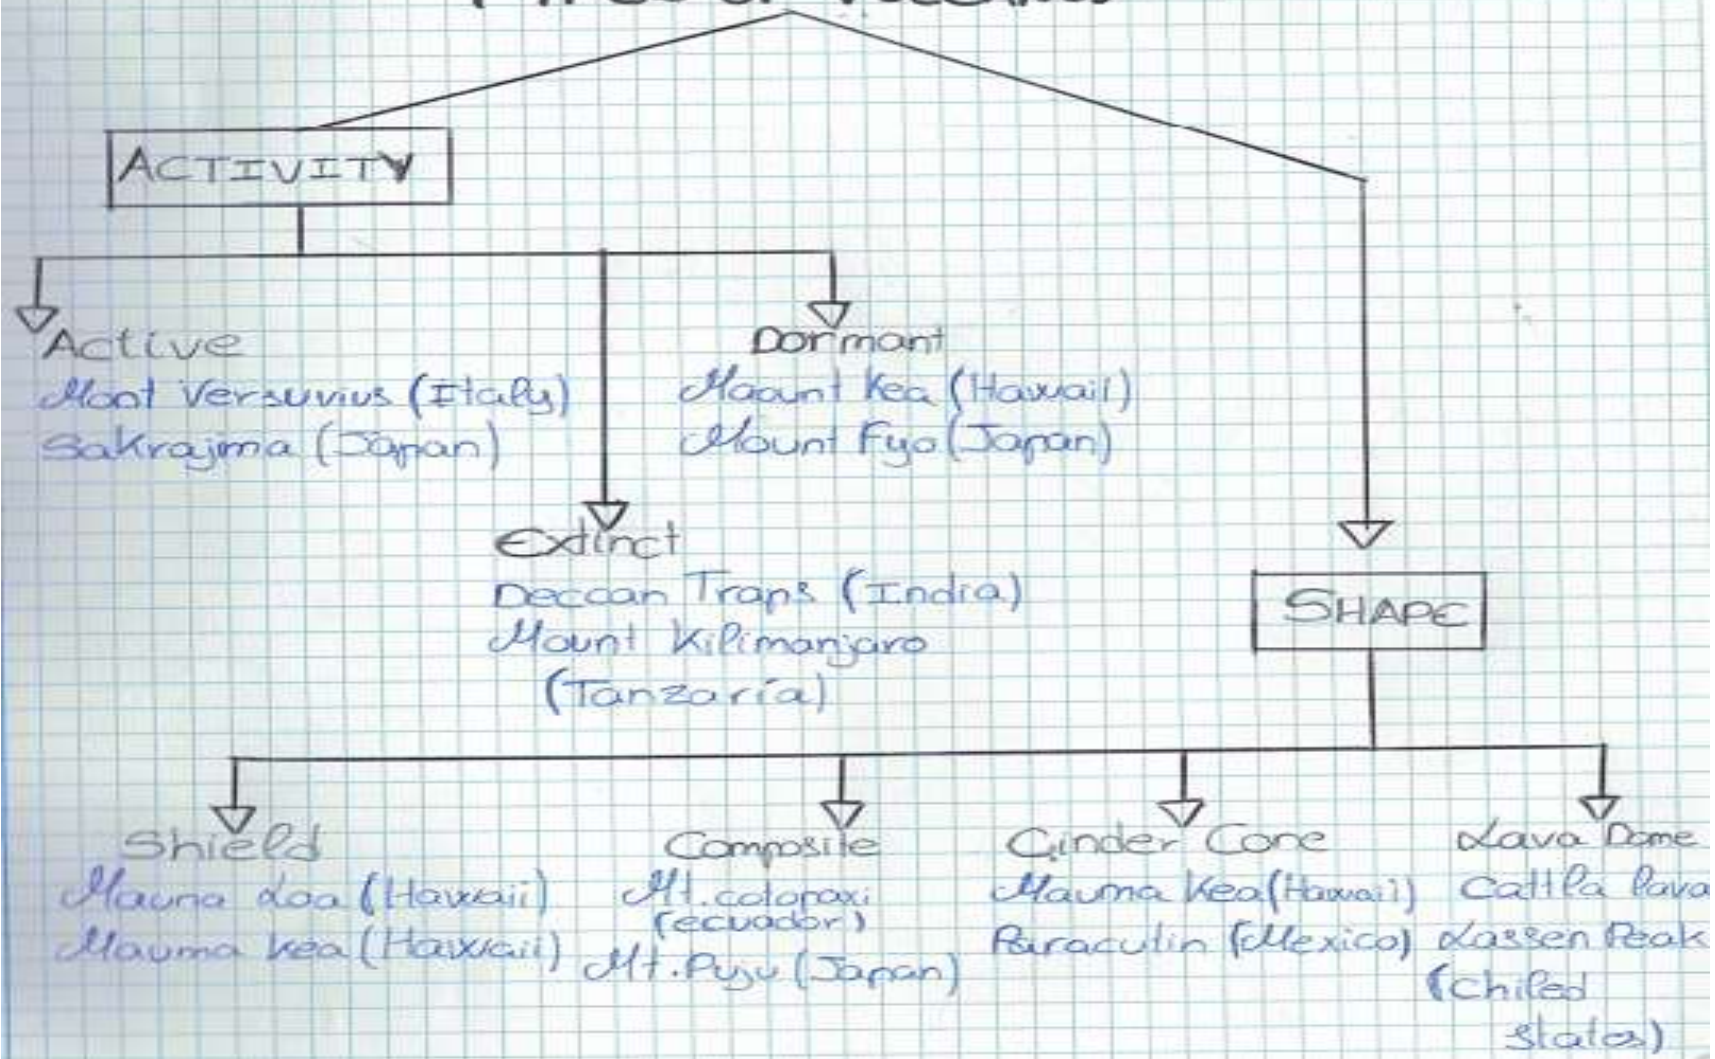 TYPES OF VOLCANOES
ACTIVITY
Active
Moot Versuvius (Italy)
Sakrajima (Japan)
Dormant
Maount Kea (Hawaii)
Mount Fyo (Japan)
Extinct
Deccan Traps (India)
Mount Kilimanjaro
(Tanzaria)
SHAPE
Shield
Mauna Loa (Hawaii)
Mauma Kea (Hawaii)
Composite
Mt. cotopaxi
(ecuador)
Mt. Puju (Japan)
Cinder Cone
Mauma Kea (Hawaii)
Paraculin (Mexico)
Lava Dome
Cattla lava
Lassen Peak
(Chiled
states)